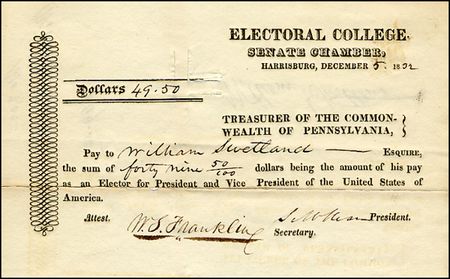 ELECTORAL COLLEGE,
SENATE CHAMBER,
HARRISBURG, DECEMBER 5. 1832
Dollars 49.50
TREASURER OF THE COMMON-
WEALTH OF PENNSYLVANIA,
Pay to William Swetland — ESQUIRE,
the sum of forty nine 50/100 dollars being the amount of his pay
as an Elector for President and Vice President of the United States of
America.
Attest. President.
W. S. Franklin Secretary.